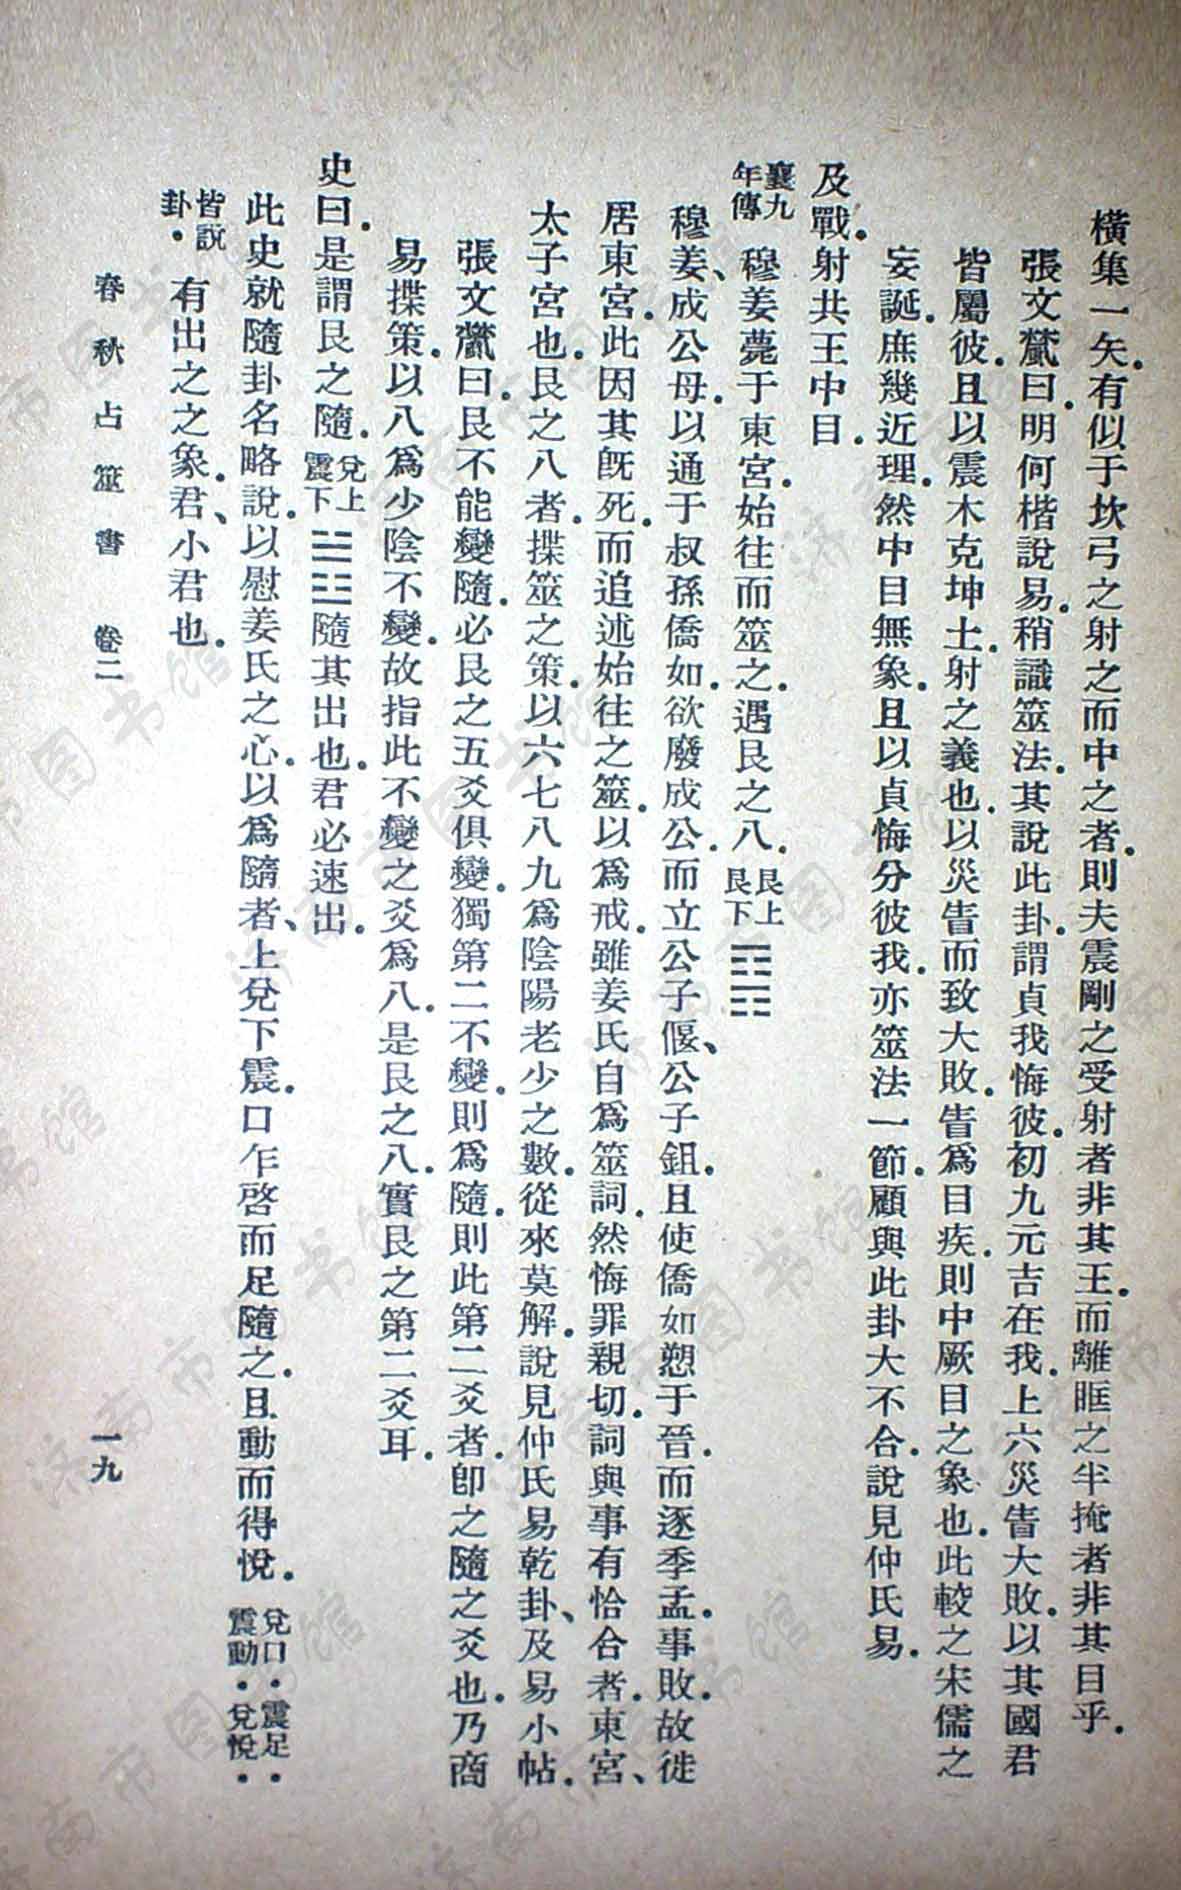 橫集一矢。有似于坎弓之射之而中之者。則夫震剛之受射者非其王。而離眶之半掩者非其目乎。
張文虣曰。明何楷說易。稍識筮法。其說此卦。謂貞我悔彼。初九元吉在我。上六災眚大敗。以其國君
皆屬彼。且以震木克坤土。射之義也。以災眚而致大敗。眚爲目疾。則中厥目之象也。此較之宋儒之
妄誕。庶幾近理。然中目無象。且以貞悔分彼我。亦筮法一節。顧與此卦大不合。說見仲氏易。
及戰。射共王中目。
襄九年傳 穆姜薨于東宮。始往而筮之。遇艮之八。艮上艮下 ䷳
穆姜、成公母。以通于叔孫僑如。欲廢成公。而立公子偃、公子鉏。且使僑如愬于晉。而逐季孟。事敗。故徙
居東宮。此因其旣死。而追述始往之筮。以爲戒。雖姜氏自爲筮詞。然悔罪親切。詞與事有恰合者。東宮、
太子宮也。艮之八者。揲筮之策。以六七八九爲陰陽老少之數。從來莫解。說見仲氏易乾卦、及易小帖。
張文虣曰。艮不能變隨。必艮之五爻俱變。獨第二不變。則爲隨。則此第二爻者。卽之隨之爻也。乃商
易揲策。以八爲少陰不變。故指此不變之爻爲八。是艮之八。實艮之第二爻耳。
史曰。是謂艮之隨。兌上震下 ䷐隨其出也。君必速出。
此史就隨卦名略說。以慰姜氏之心。以爲隨者、上兌下震。口乍啓而足隨之。且動而得悅。兌口・震足・震動・兌悅・
皆說卦・ 有出之之象。君、小君也。
春秋占筮書 卷二 一九
济南市图书馆